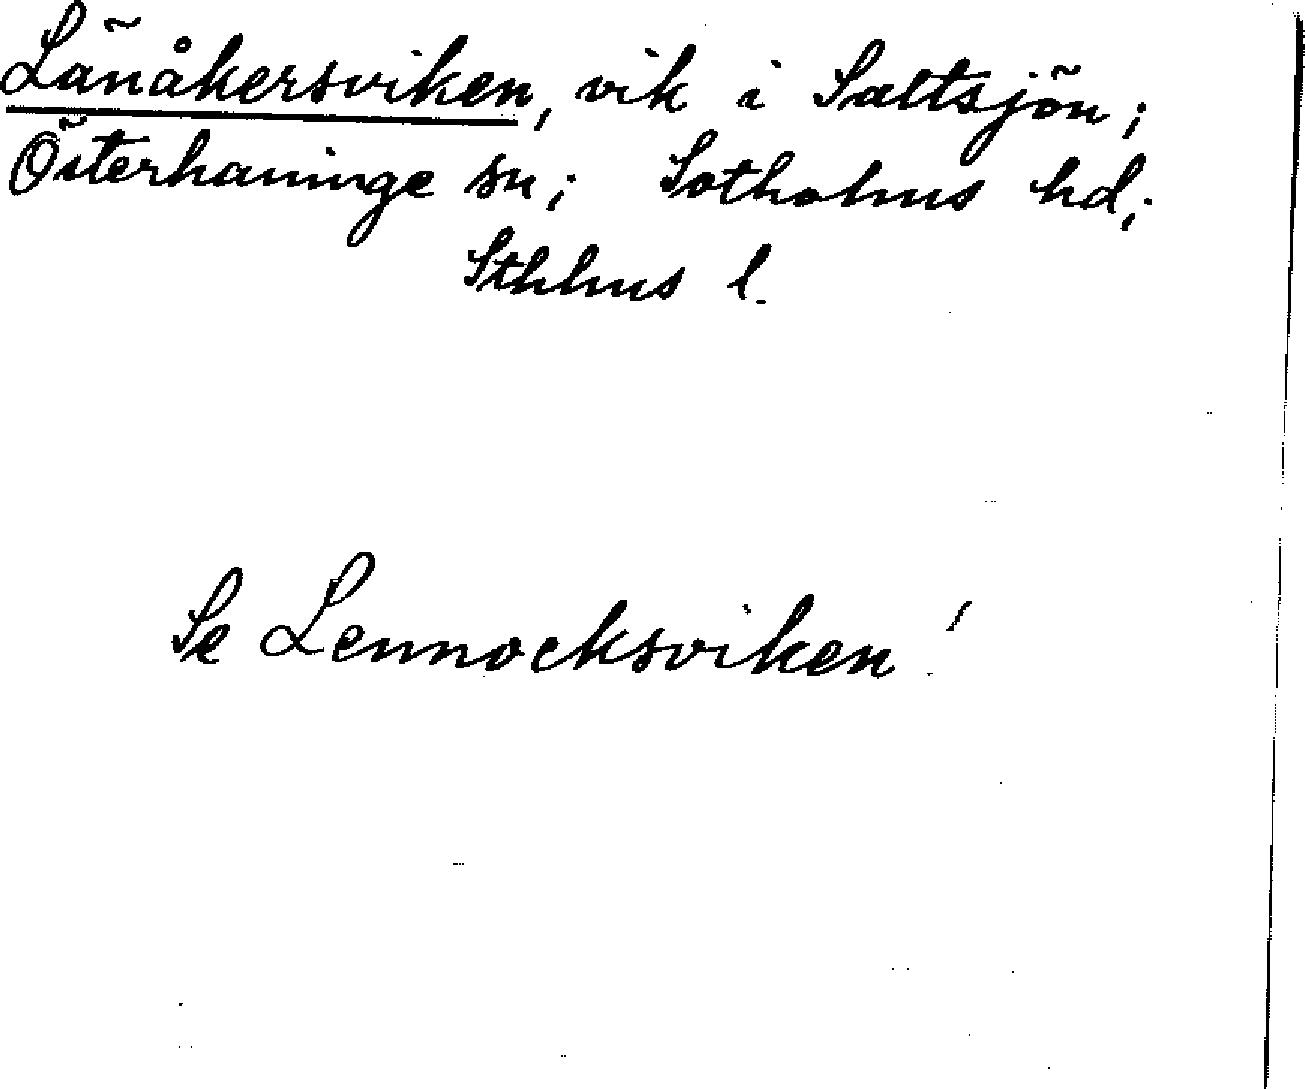 Länåkersviken, vik i Saltsjön;
Österhaninge sn; Sotholms hd;
Sthlms l.
Se Lennocksviken!